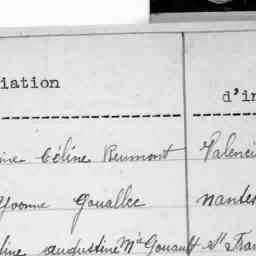 iation
d'in
ine Céline Reumont Valenci
Yvonne Gouallec Nantes
line Augustine Mie Gouault St Fran